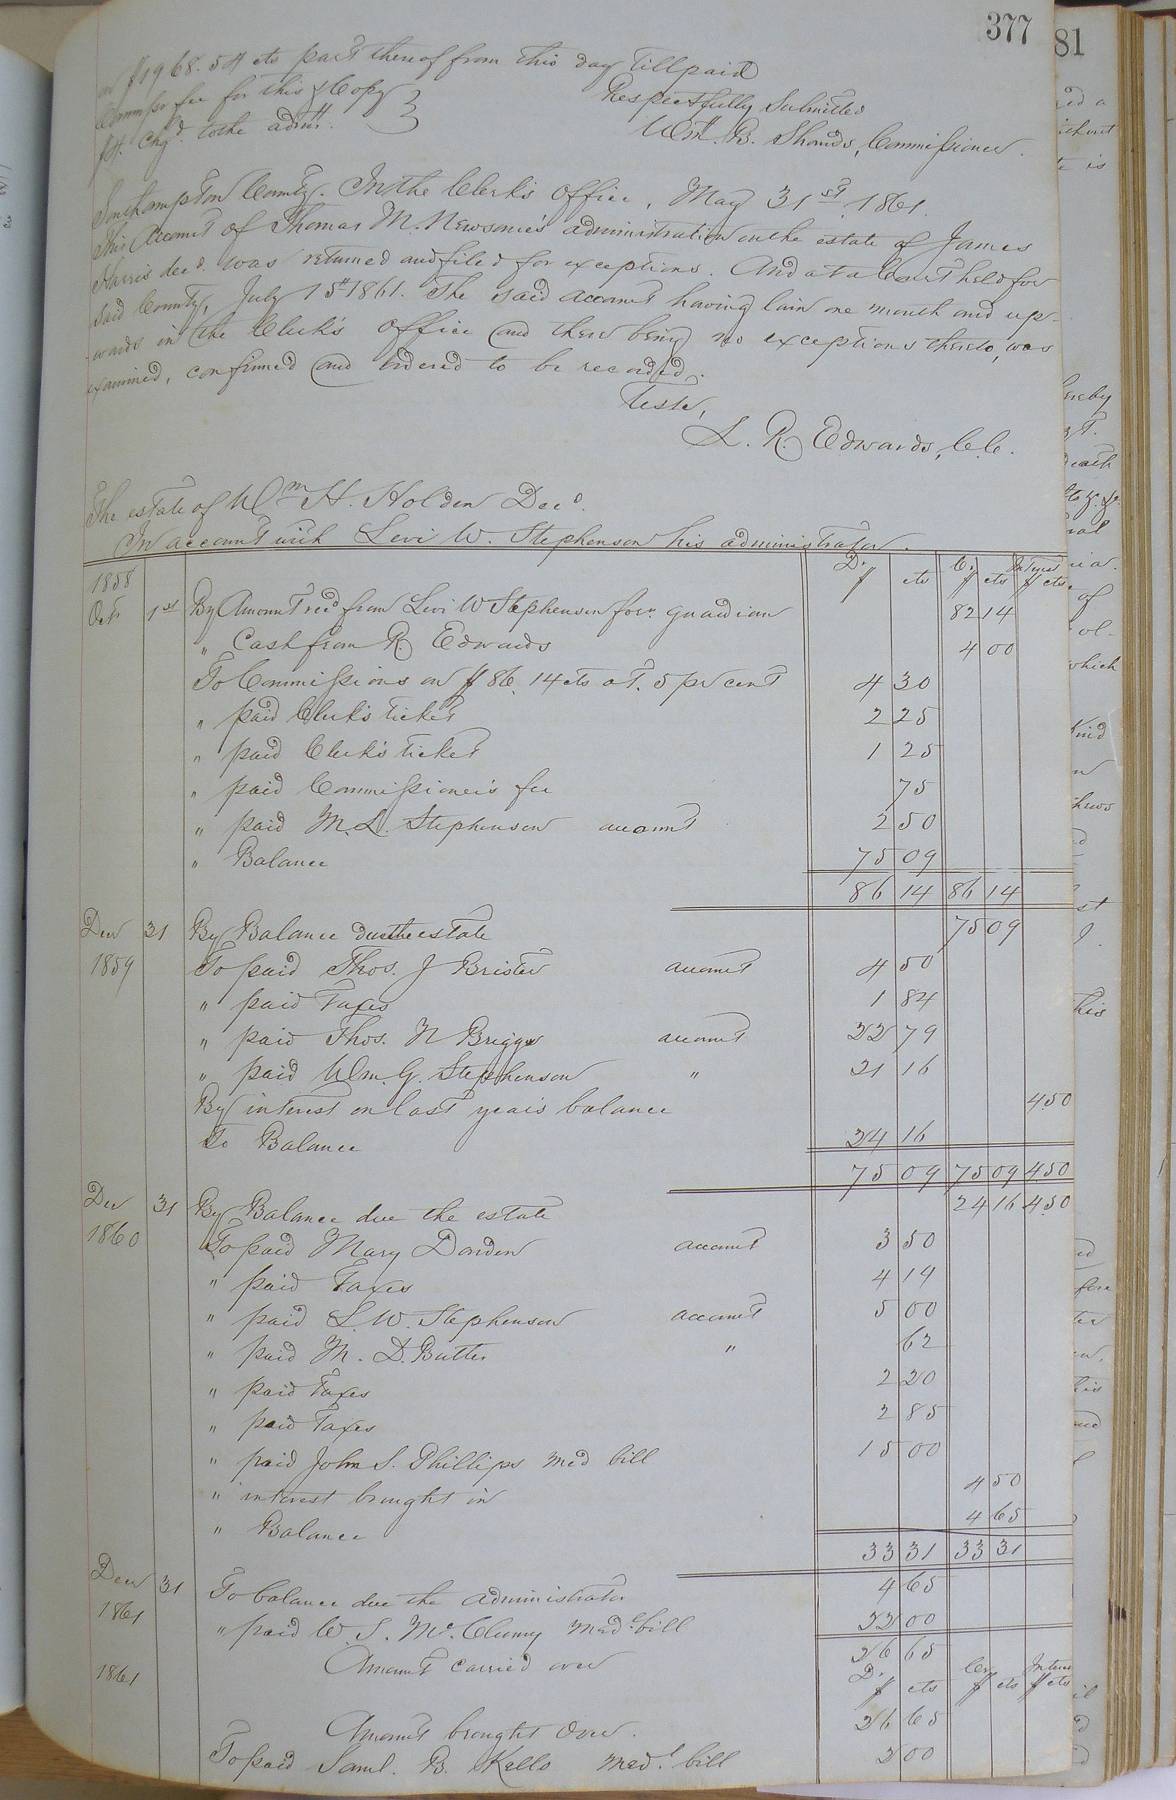 377
81
on $1968.54 cts part thereof from this day till paid
Commissr fee for this & Copy
pd. Chgd. to the admr.
Respectfully Submitted
Commissioner.
Southampton County. In the Clerk's Office, May 31st. 1861.
This Account of Thomas M. Newsome's administration on the estate of James
Harris decd. was returned and filed for exceptions. And at a Court held for
Said County, July 15th 1861. The said account having lain one month and up-
wards in the Clerk's Office and there being no exceptions thereto, was
examined, confirmed and ordered to be recorded.
Teste,
L. R. Edwards, C.C.
The estate of Wm H. Holden Decd.
In account with Levi W. Stephenson his administrator.
Dr. Cr. Interest
$ cts $ cts $ cts
1858
Oct. 1st By Amount recd from Levi W Stephenson forr. guardian 82 14
" Cash from R. Edwards 4 00
To Commissions on $86.14 cts at. 5 pr cent 4 30
" paid Clerk's ticket 2 25
" paid Clerk's ticket 1 25
" paid Commissioner's fee 75
" paid M. L. Stephenson account 2 50
" Balance 75 09
86 14 86 14
Dec 31 By Balance due the estate 75 09
1859 To paid Thos. J Brister account 4 50
" paid Taxes 1 84
" paid Thos. N Briggs account 22 79
" paid Wm. G. Stephenson " 21 16
By interest on last year's balance 4 50
To Balance 24 16
75 09 75 09 4 50
Dec 31 By Balance due the estate 24 16 4 50
1860 To paid Mary Darden account 3 50
" paid Taxes 4 14
" paid L. W. Stephenson account 5 00
" paid M. D. Butts " 62
" paid Taxes 2 20
" paid Taxes 2 85
" paid John S. Phillips med bill 15 00
" interest brought in 4 50
" Balance 4 65
33 31 33 31
Dec 31 To balance due the administrator 4 65
1861 " paid W. S. Mc. Clenny Medl bill 22 00
Amount carried over 26 65
1861 Dr. Cr Interest
$ cts $ cts $ cts
Amount brought Over. 26 65
To paid Saml. B. Kello Medl. bill 2 00